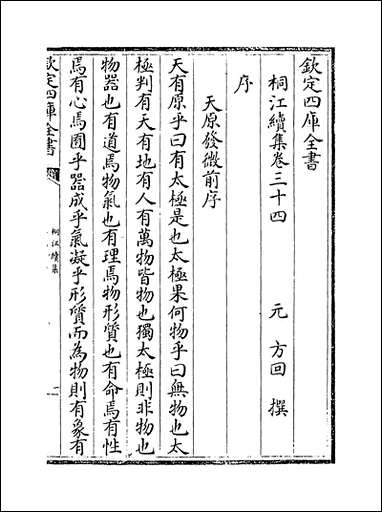 欽定四庫全書
桐江續集卷三十四
元 方回 撰
序
天原發微前序
天有原乎曰有太極是也太極果何物乎曰無物也太
極判有天有地有人有萬物皆物也獨太極則非物也
物器也有道焉物氣也有理焉物形質也有命焉有性
焉有心焉囿乎器成乎氣凝乎形質而為物則有象有
欽定四庫全書
桐江續集
一